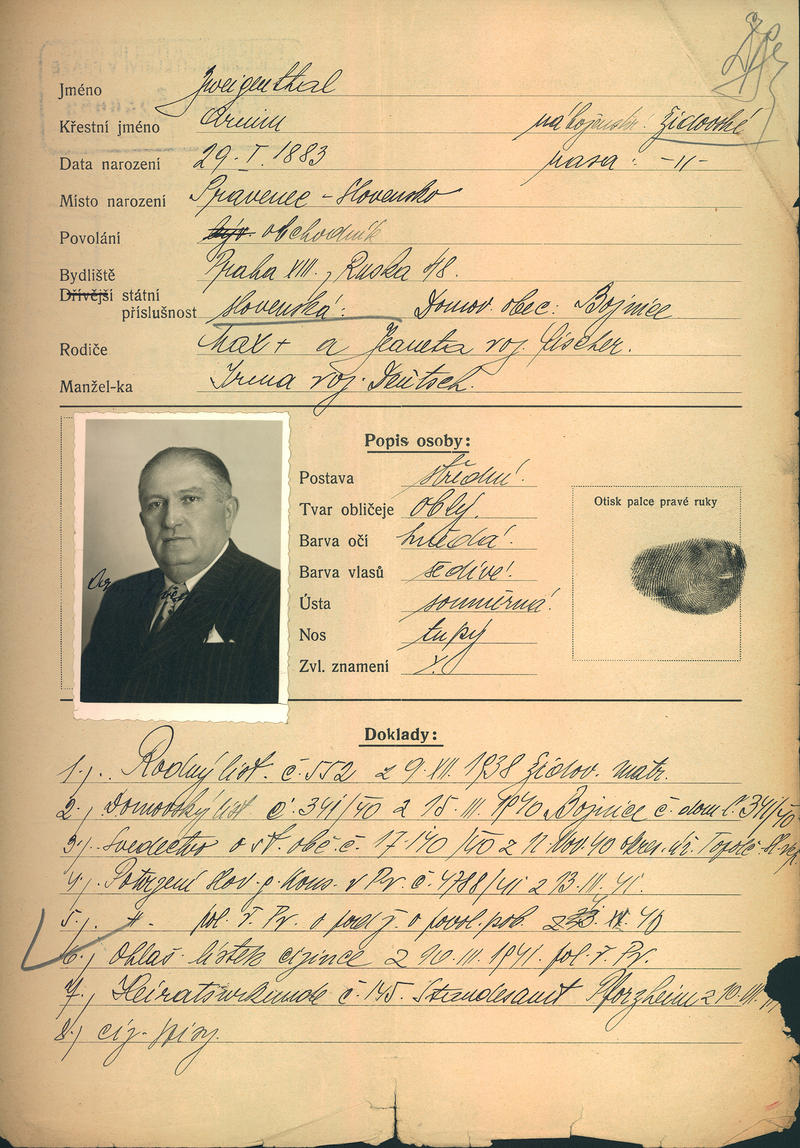 Jméno Zweigenthal
Křestní jméno Armin nábožens. židovské
Data narození 29. I. 1883 rasa: -"-
Místo narození Pravenec - Slovensko
Povolání býv. obchodník
Bydliště Praha XIII., Ruská 48.
Dřívější státní
příslušnost slovenská. Domov. obec: Bojnice
Rodiče Max + a Jeaneta roz. Fischer.
Manžel-ka Irena roz. Deutsch.
Popis osoby:
Postava střední.
Tvar obličeje oblý.
Barva očí hnědá.
Barva vlasů šedivé.
Ústa souměrná.
Nos tupý
Zvl. znamení X.
Otisk palce pravé ruky
Doklady:
1.) Rodný list. č. 552 z 9. XII. 1938 židov. matr.
2.) Domovský list č. 341/40 z 15. III. 1940, Bojnice č. dom. l. 341/40
3.) Svedectvo o st. obč. č. 17140/40 z 12. nov. 40 okres. úř. Topolč.
4.) Potvrzení slov. g. kons. v Pr. č. 4788/41 z 13. III. 41.
5.) -"- pol. ř. Pr. o pod. ž. o povol. pob. 40
6.) Ohlaš. lístek cizince z 20. III. 1941. pol. ř. Pr.
7.) Heiratsurkunde č. 145. Standesamt Pforzheim z 10. III.
8.) ciz. spisy.